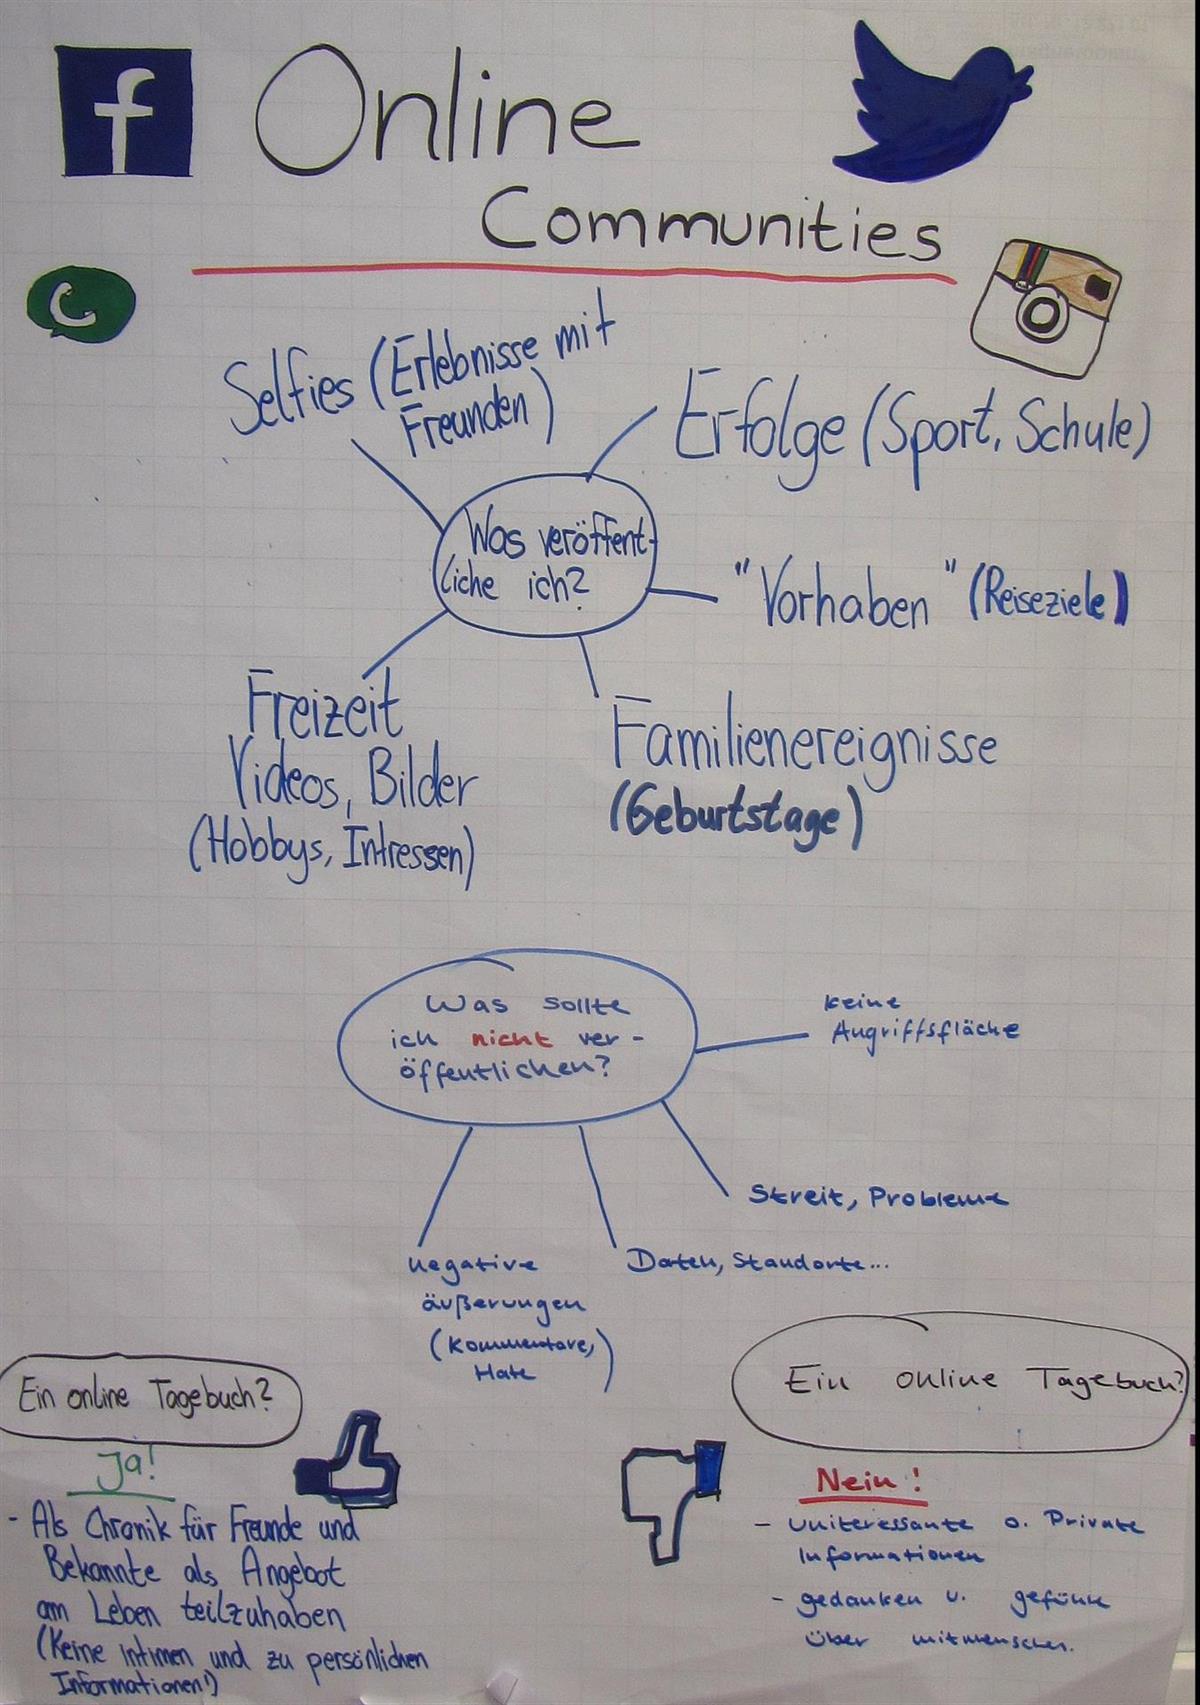 Online
Communities
Selfies (Erlebnisse mit
Freunden)
Erfolge (Sport, Schule)
Was veröffent-
liche ich?
"Vorhaben" (Reiseziele)
Freizeit
Videos, Bilder
(Hobbys, Intressen)
Familienereignisse
(Geburtstage)
Was sollte
ich nicht ver-
öffentlichen?
keine
Angriffsfläche
Streit, Probleme
Daten, Standorte...
negative
äußerungen
(Kommentare,
Hate)
Ein online Tagebuch?
Ja!
- Als Chronik für Freunde und
Bekannte als Angebot
am Leben teilzuhaben
(Keine intimen und zu persönlichen
Informationen!)
Ein online Tagebuch?
Nein!
- uniteressante o. Private
Informationen
- gedanken u. gefühle
über mitmenschen.